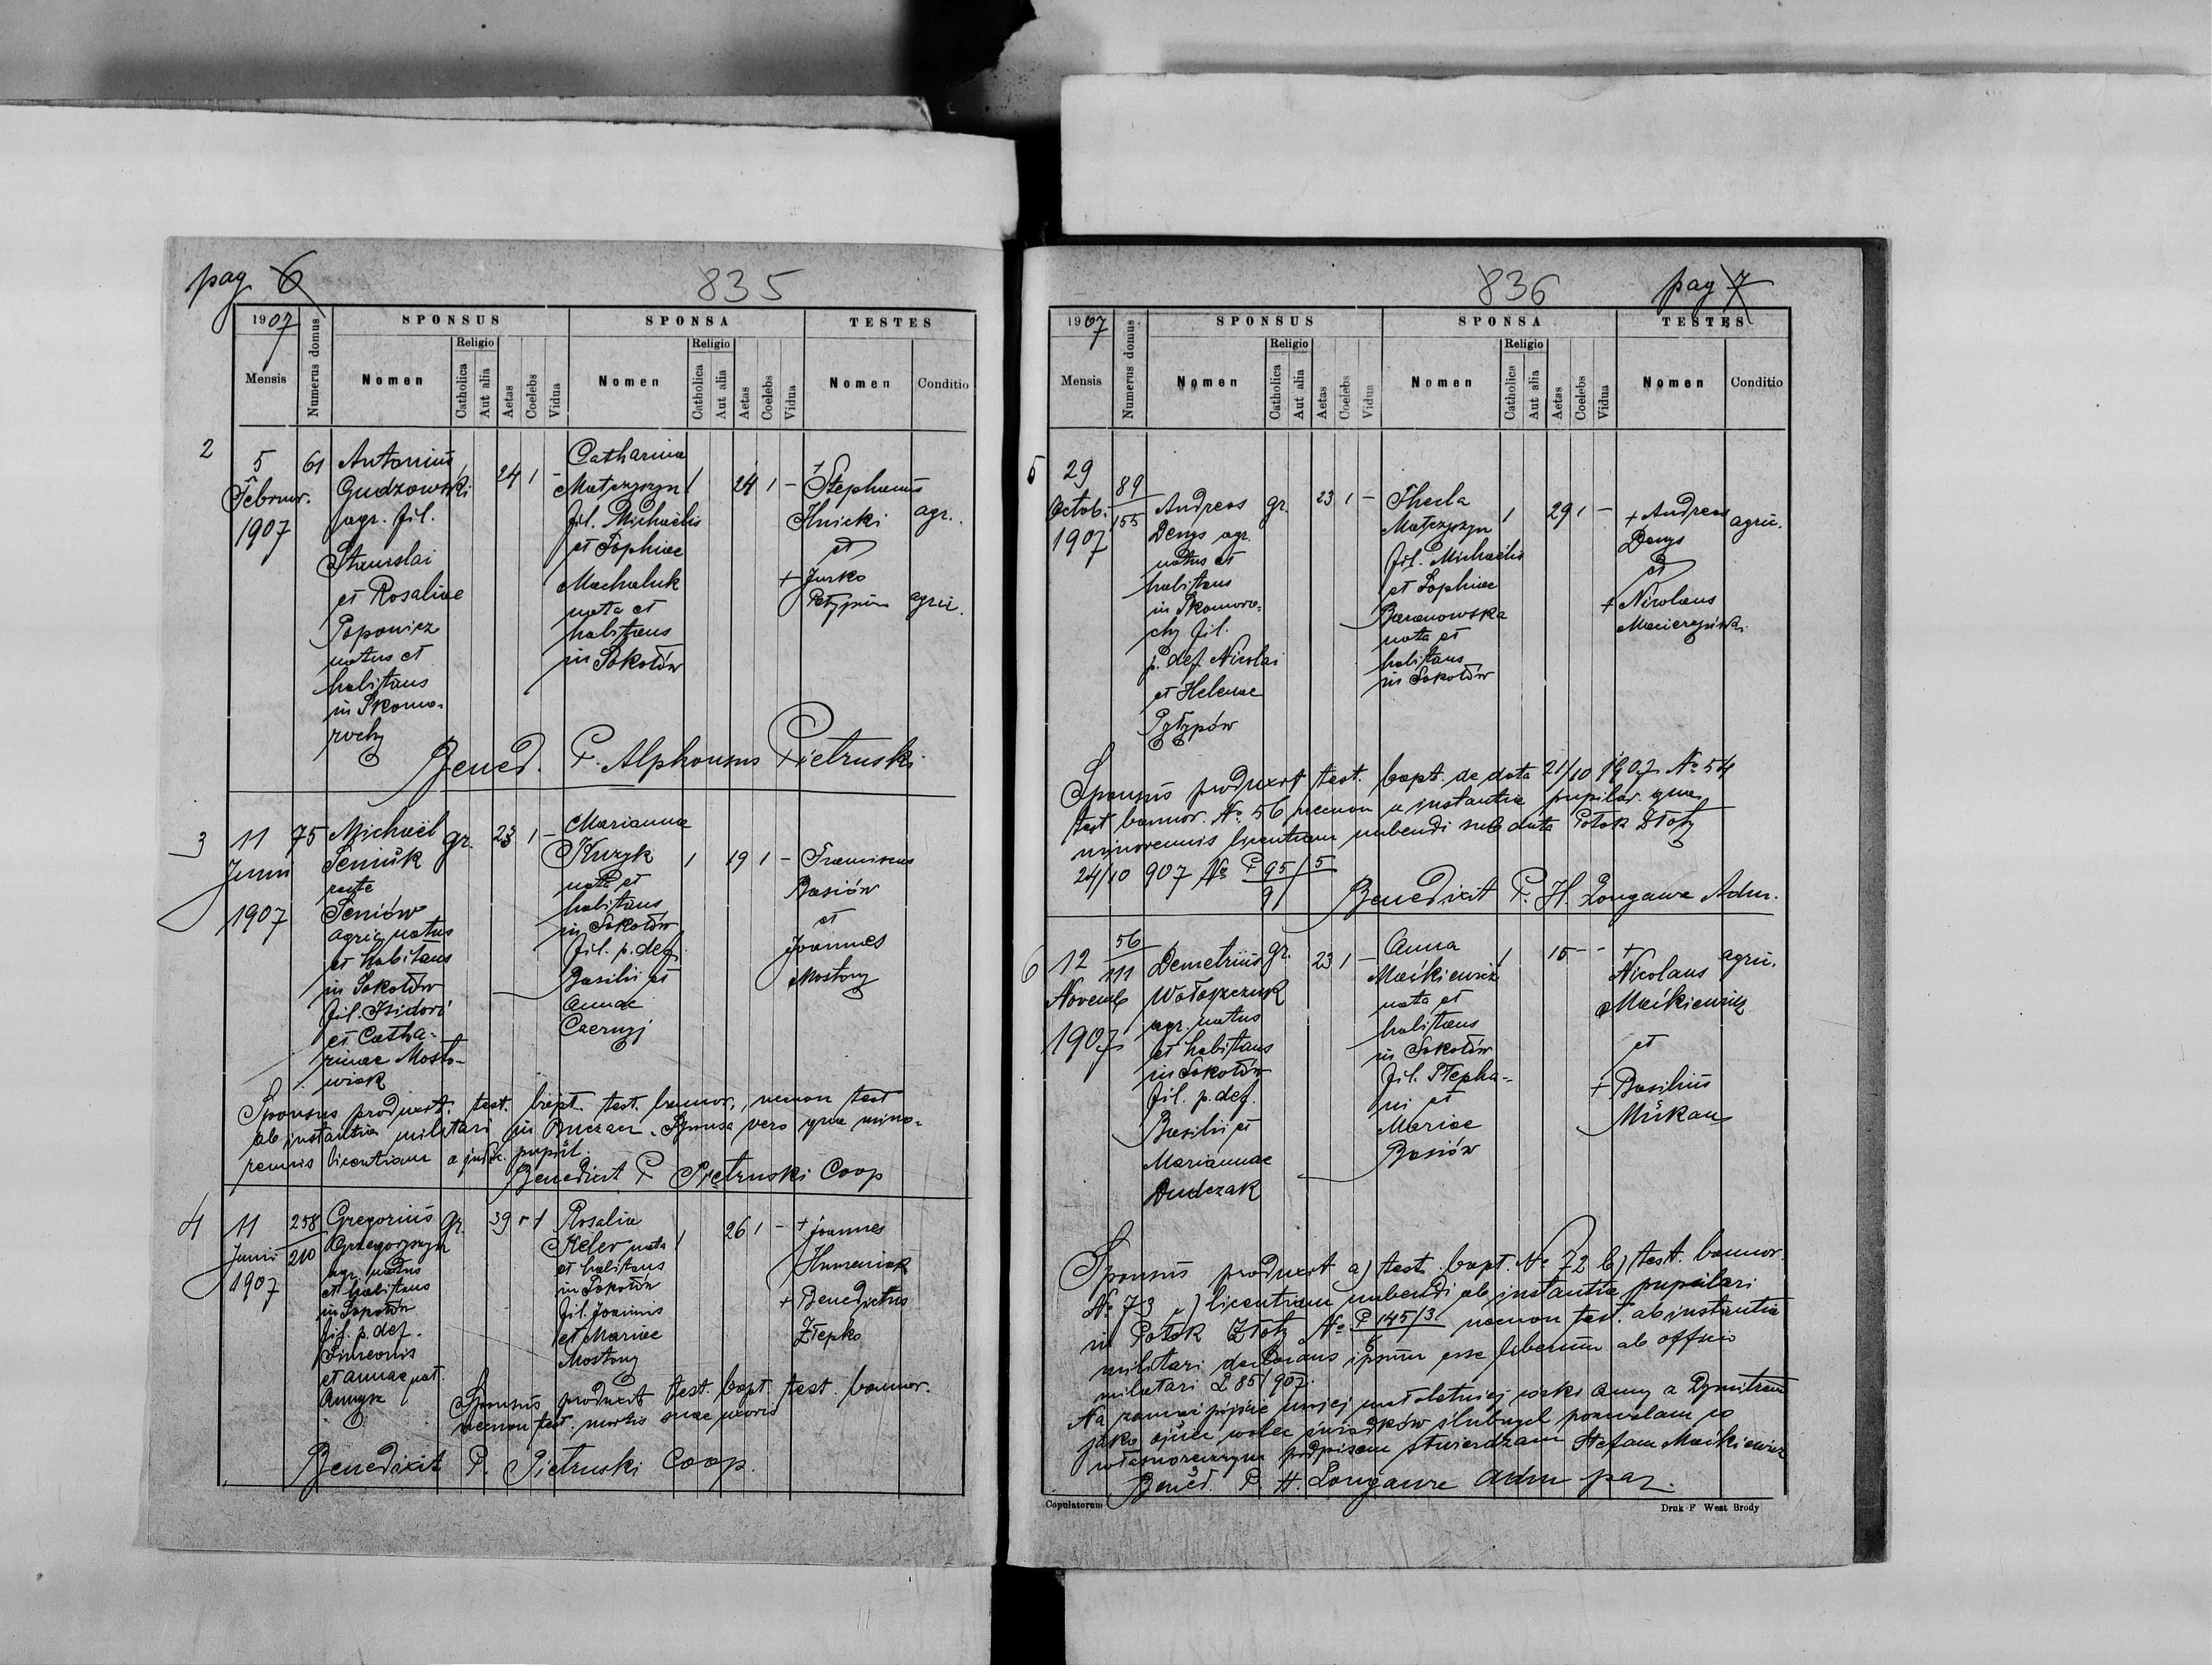 pag 6
835
1907
Mensis
Numerus domus
SPONSUS
Nomen
Religio
Catholica
Aut alia
Aetas
Coelebs
Vidua
SPONSA
Nomen
Religio
Catholica
Aut alia
Aetas
Coelebs
Vidua
TESTES
Nomen
Conditio
2
5
Februar.
1907
61
Antonius
Gudzowski
agr. fil.
Stanislai
et Rosaliae
Popowicz
natus et
habitans
in Skomo-
rochy
1
24 1 -
Catharina
Matczyszyn
fil. Michaëlis
et Sophiae
Machaluk
nata et
habitans
in Sokołów
1
24 1 -
+ Stephanus
Ilnicki
et
+ Jurko
agr.
agric.
Bened. P. Alphonsus Pietruski
3
11
Junii
1907
75
Michaël
Seniuk
recte
Seniów
agric. natus
et habitans
in Sokołów
fil. Isidori
et Catha-
rinae Mosto-
wiak
gr.
23 1 -
Marianna
Kuzyk
nata et
habitans
in Sokołów
fil. p. def.
Basilii et
Annae
Czernyj
1
19 1 -
Franciscus
Basiów
et
Joannes
Mostowy
Sponsus produxit test. bapt. test. bannor., necnon test
ab instantia militari in Buczacz. Sponsa vero qua mino-
rennis licentiam a judic. pupil.
Benedixit P. Pietruski Coop
4
11
Junii
1907
258
210
Gregorius
Grzegorzyszyn
agr. natus
et habitans
in Sokołów
fil. p. def.
Simeonis
et Annae nat.
gr.
39 - 1
Rosalia
Keler nata
et habitans
in Sokołów
fil. Joannis
et Mariae
Mostowy
1
26 1 -
+ Joannes
Humeniak
+ Benedictus
Złepko
Sponsus produxit test. bapt. test. bannor.
necnon test. mortis suae uxoris
Benedixit P. Pietruski Coop.
836
pag 7
1907
Mensis
Numerus domus
SPONSUS
Nomen
Religio
Catholica
Aut alia
Aetas
Coelebs
Vidua
SPONSA
Nomen
Religio
Catholica
Aut alia
Aetas
Coelebs
Vidua
TESTES
Nomen
Conditio
5
29
Octob.
1907
89
155
Andreas
Denys agr.
natus et
habitans
in Skomoro-
chy fil.
p. def. Nicolai
et Helenae
Pyłypów
gr.
23 1 -
Thecla
Matczyszyn
fil. Michaëlis
et Sophiae
Baranowska
nata et
habitans
in Sokołów
1
29 1 -
+ Andreas
Denys
et
+ Nicolaus
Macierzyński
agric.
Sponsus produxit test. bapt. de data 21/10 1907 No 54
test bannor. No 56 necnon a instantia pupilar. qua
minorennis licentiam nubendi sub data Potok Złoty
24/10 907 No P 95/5
9
Benedixit P. H. Longawa Adm.
6
12
Novemb
1907
56
111
Demetrius
Wołoszczuk
agr. natus
et habitans
in Sokołów
fil. p. def.
Basilii et
Mariannae
Dudczak
gr.
23 1 -
Anna
Maćkiewicz
nata et
habitans
in Sokołów
fil. Stepha-
ni et
Mariae
Basiów
1
15 - -
+
Nicolaus
Maćkiewicz
et
+ Basilius
Mükan
agric.
Sponsus produxit a) test. bapt. No 72 b) test. bannor.
No 73 c) licentiam nubendi ab instantia pupilari
in Potok Złoty No P 145/3 necnon test. ab instantia
6
militari declarans ipsum esse liberum ab officio
militari L 85/907.
Na zamążpójście mojej małoletniej córki Anny a Dymitrem
jako ojciec wobec świadków ślubnych pozwalam co
własnoręcznym podpisem stwierdzam Stefan Maćkiewicz
Bened. P. H. Longawa Adm par.
Copulatorum
Druk F West Brody